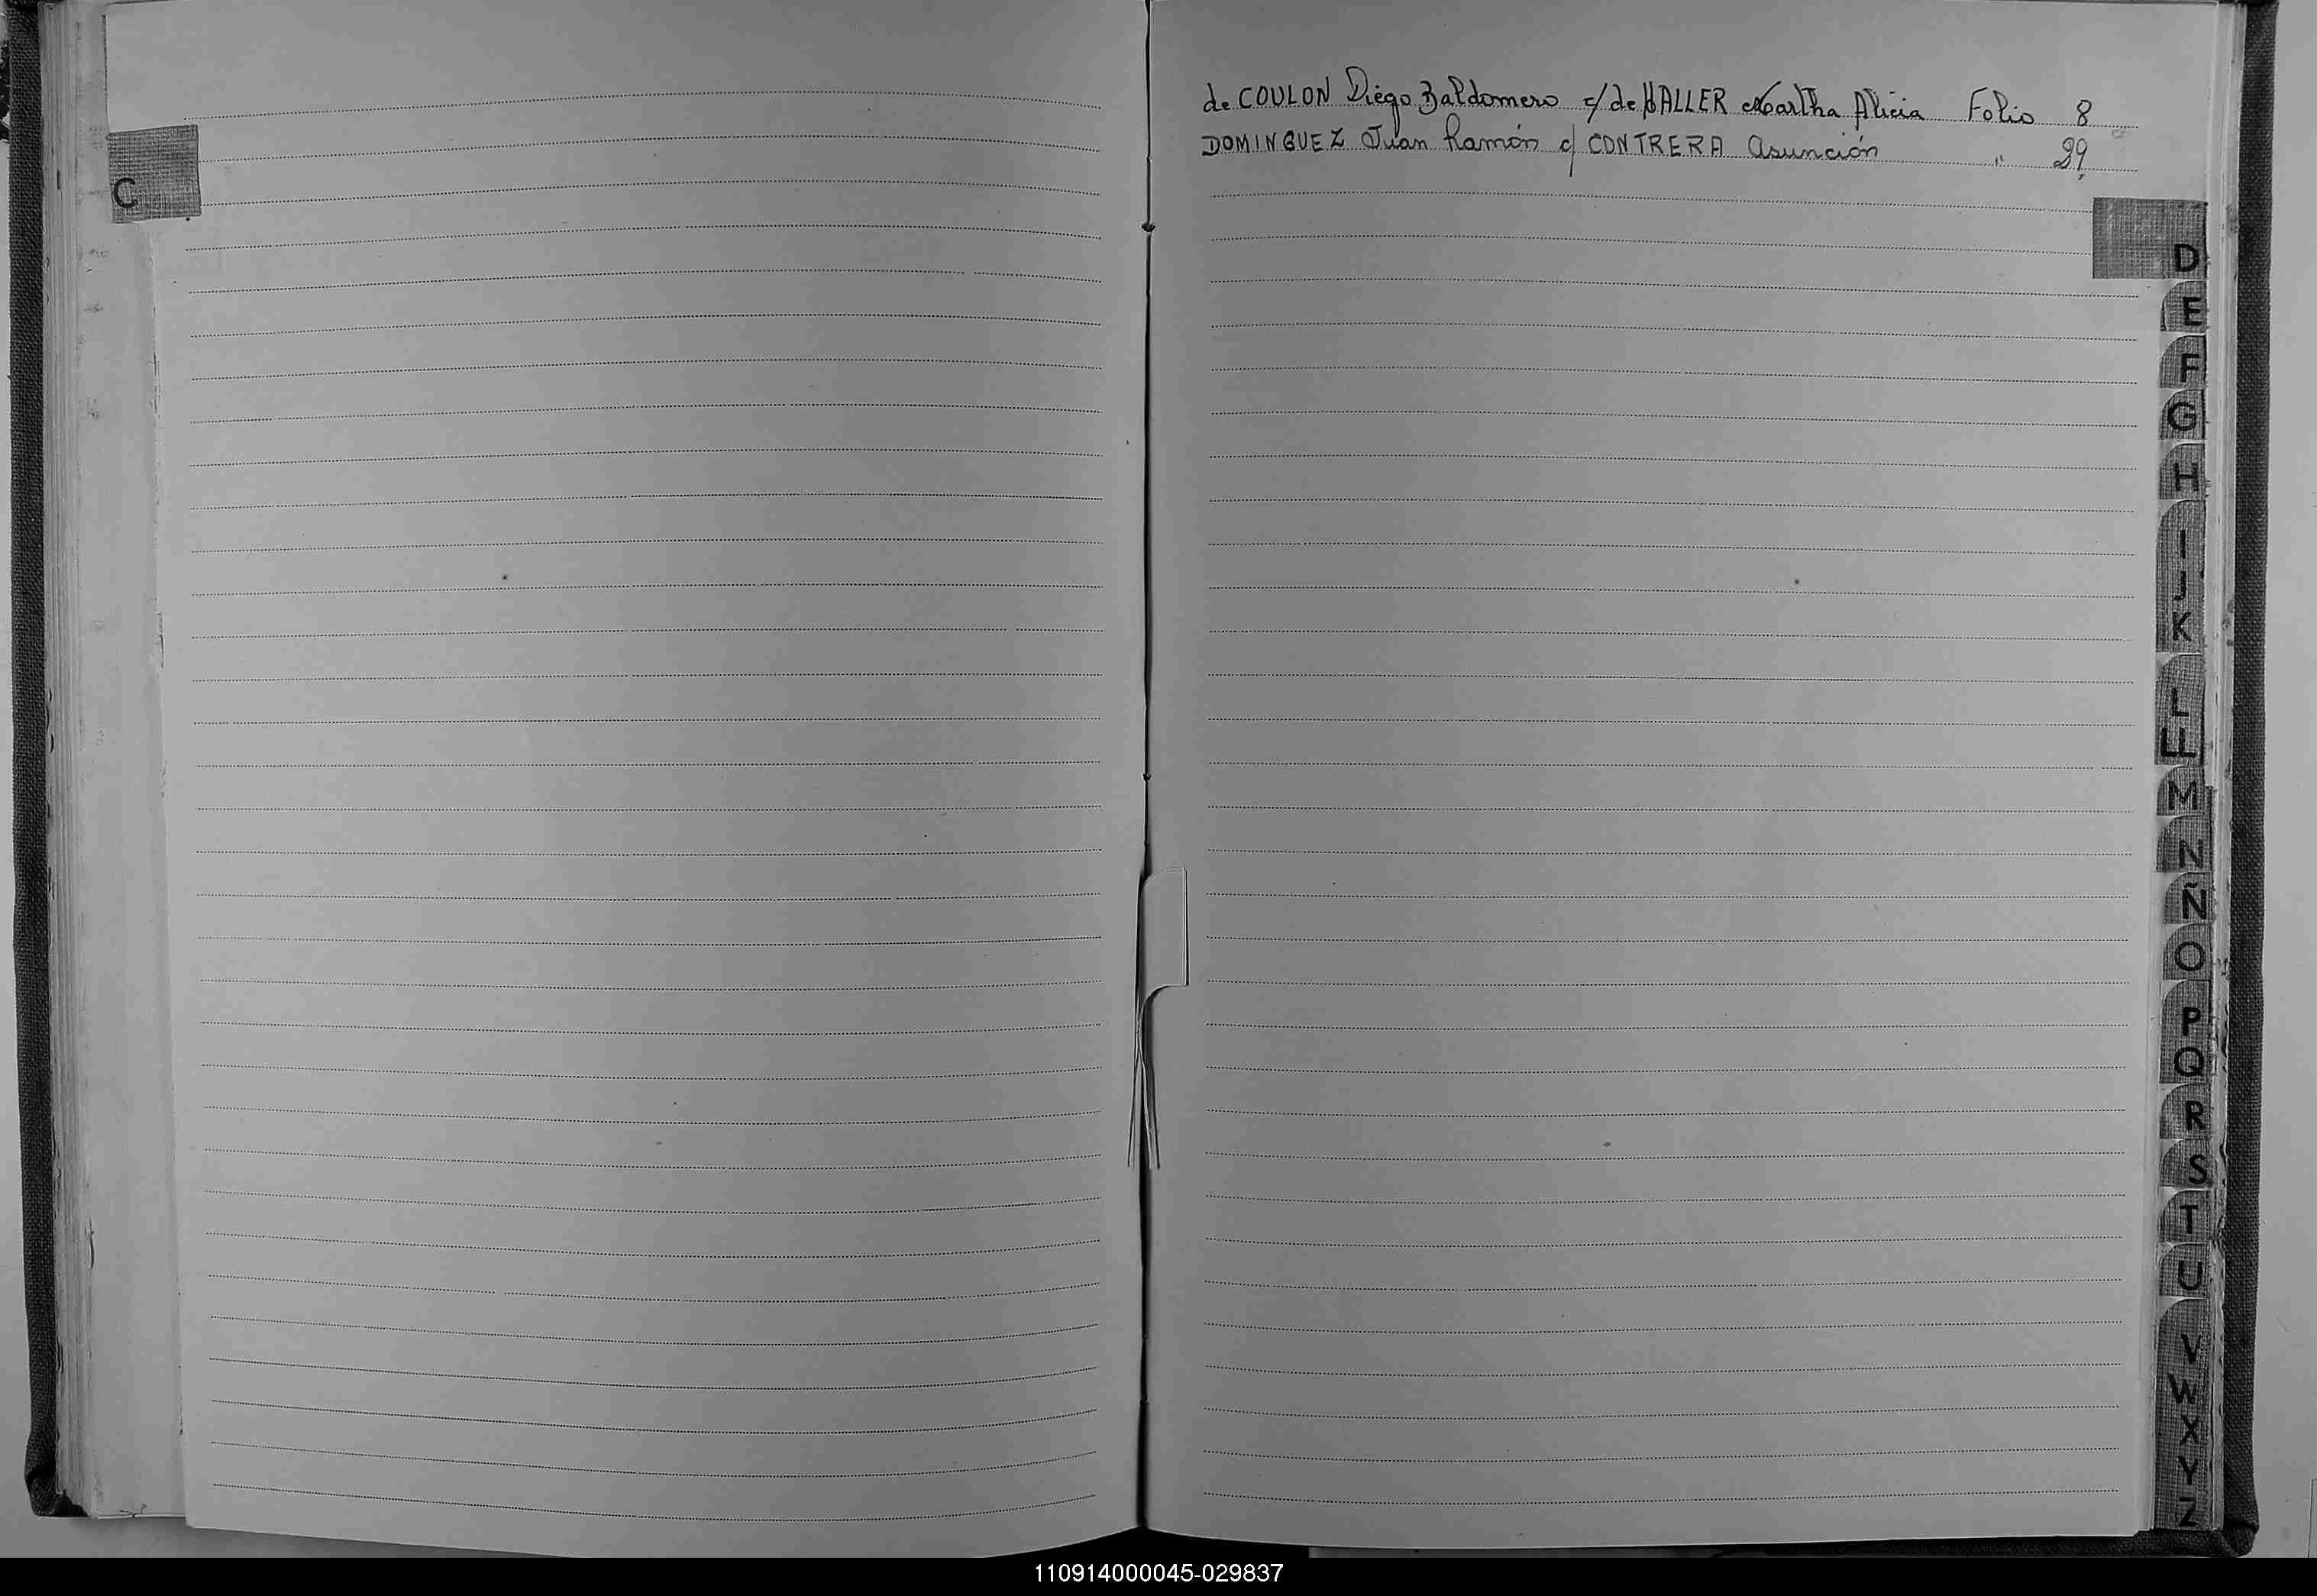 C
de COULON Diego Baldomero c/ de HALLER Martha Alicia Folio 8
DOMINGUEZ Juan Ramón c/ CONTRERA Asunción " 29
D
E
F
G
H
I
J
K
L
LL
M
N
Ñ
O
P
Q
R
S
T
U
V
W
X
Y
Z
110914000045-029837